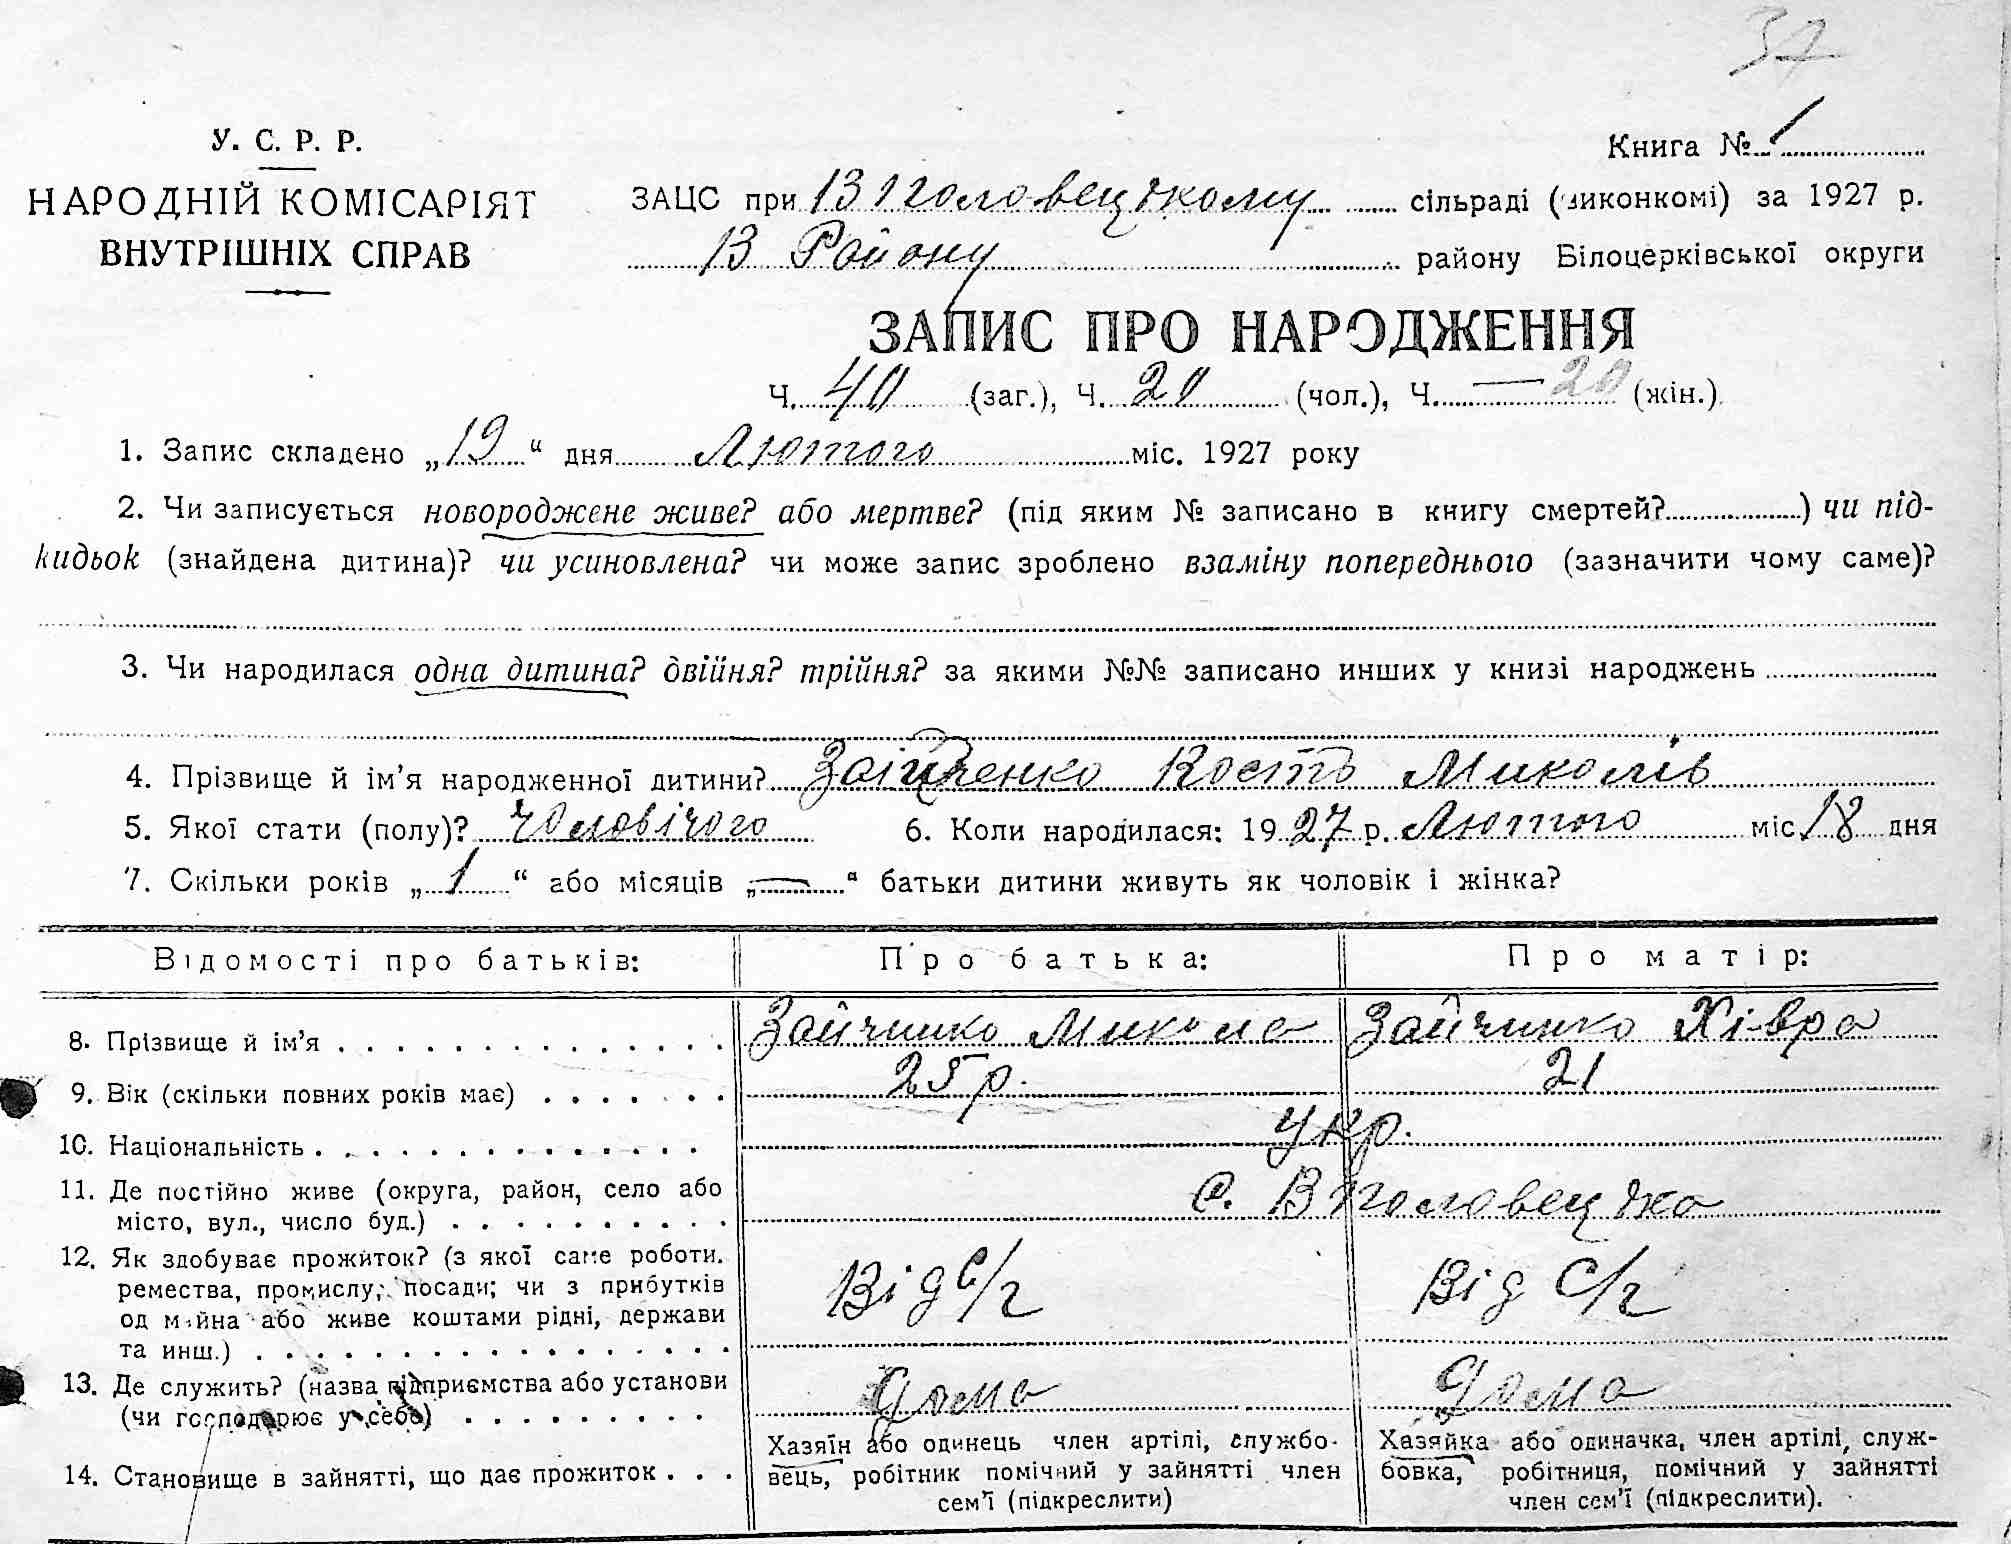 37
У. С. Р. Р.
НАРОДНІЙ КОМІСАРІЯТ
ВНУТРІШНІХ СПРАВ
Книга № 1
ЗАЦС при В Половецькому сільраді (виконкомі) за 1927 р.
В Району району Білоцерківської округи
ЗАПИС ПРО НАРОДЖЕННЯ
Ч. 40 (заг.), Ч. 20 (чол.), Ч. — 20 (жін.)
1. Запис складено „19“ дня Лютого міс. 1927 року
2. Чи записується новороджене живе? або мертве? (під яким № записано в книгу смертей?) чи під-
кидьок (знайдена дитина)? чи усиновлена? чи може запис зроблено взаміну попереднього (зазначити чому саме)?
3. Чи народилася одна дитина? двійня? трійня? за якими №№ записано инших у книзі народжень
4. Прізвище й ім’я народженної дитини? Зайченко Кость Миколів
5. Якої стати (полу)? Чоловічого 6. Коли народилася: 1927 р. Лютого міс 18 дня
7. Скільки років „1“ або місяців „—“ батьки дитини живуть як чоловік і жінка?
Відомості про батьків: Про батька: Про матір:
8. Прізвище й ім’я Зайчинко Микола Зайчинко Хівра
9. Вік (скільки повних років має) 25 р. 21
10. Національність укр.
11. Де постійно живе (округа, район, село або
місто, вул., число буд.) с. В Половецька
12. Як здобуває прожиток? (з якої саме роботи.
ремества, промислу, посади; чи з прибутків
од майна або живе коштами рідні, держави
та инш.) Від С/г Від С/г
13. Де служить? (назва підприємства або установи
(чи господарює у себе) Дома Дома
14. Становище в зайнятті, що дає прожиток
Хазяїн або одинець член артілі, службо-
вець, робітник помічний у зайнятті член
сем’ї (підкреслити)
Хазяйка або одиначка, член артілі, служ-
бовка, робітниця, помічний у зайнятті
член сем’ї (підкреслити).